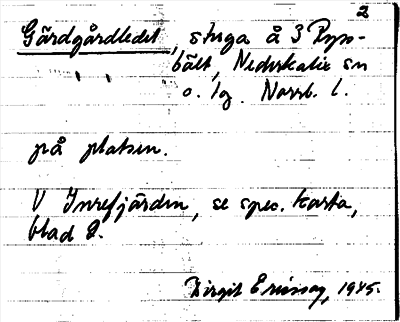 2
Gärdgårdledet, stuga å 3 Rys-
bält, Nederkalix sn
" " o. lg. Norrb. l.
på platsen.
V Inrefjärden, se spec. karta,
blad 2.
Birgit Ericson, 1945.